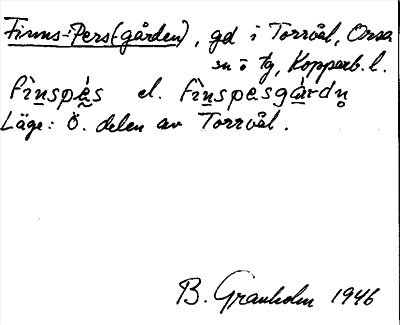 Finns-Pers(gården), gd i Torrvål, Orsa
sn o tg, Kopparb. l.
fìnspɛ́s el. fìnspesgàrdn̥
Läge: Ö. delen av Torrvål.
B. Granholm 1946